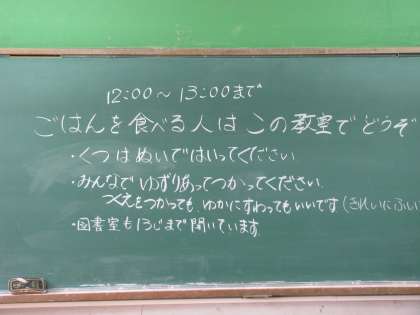 12:00～13:00まで
ごはんを食べる人は この教室で どうぞ
・くつはぬいではいってください
・みんなで ゆずりあってつかってください。
つくえをつかっても、ゆかにすわってもいいです(きれいにふい
・図書室も13じまで開いています。